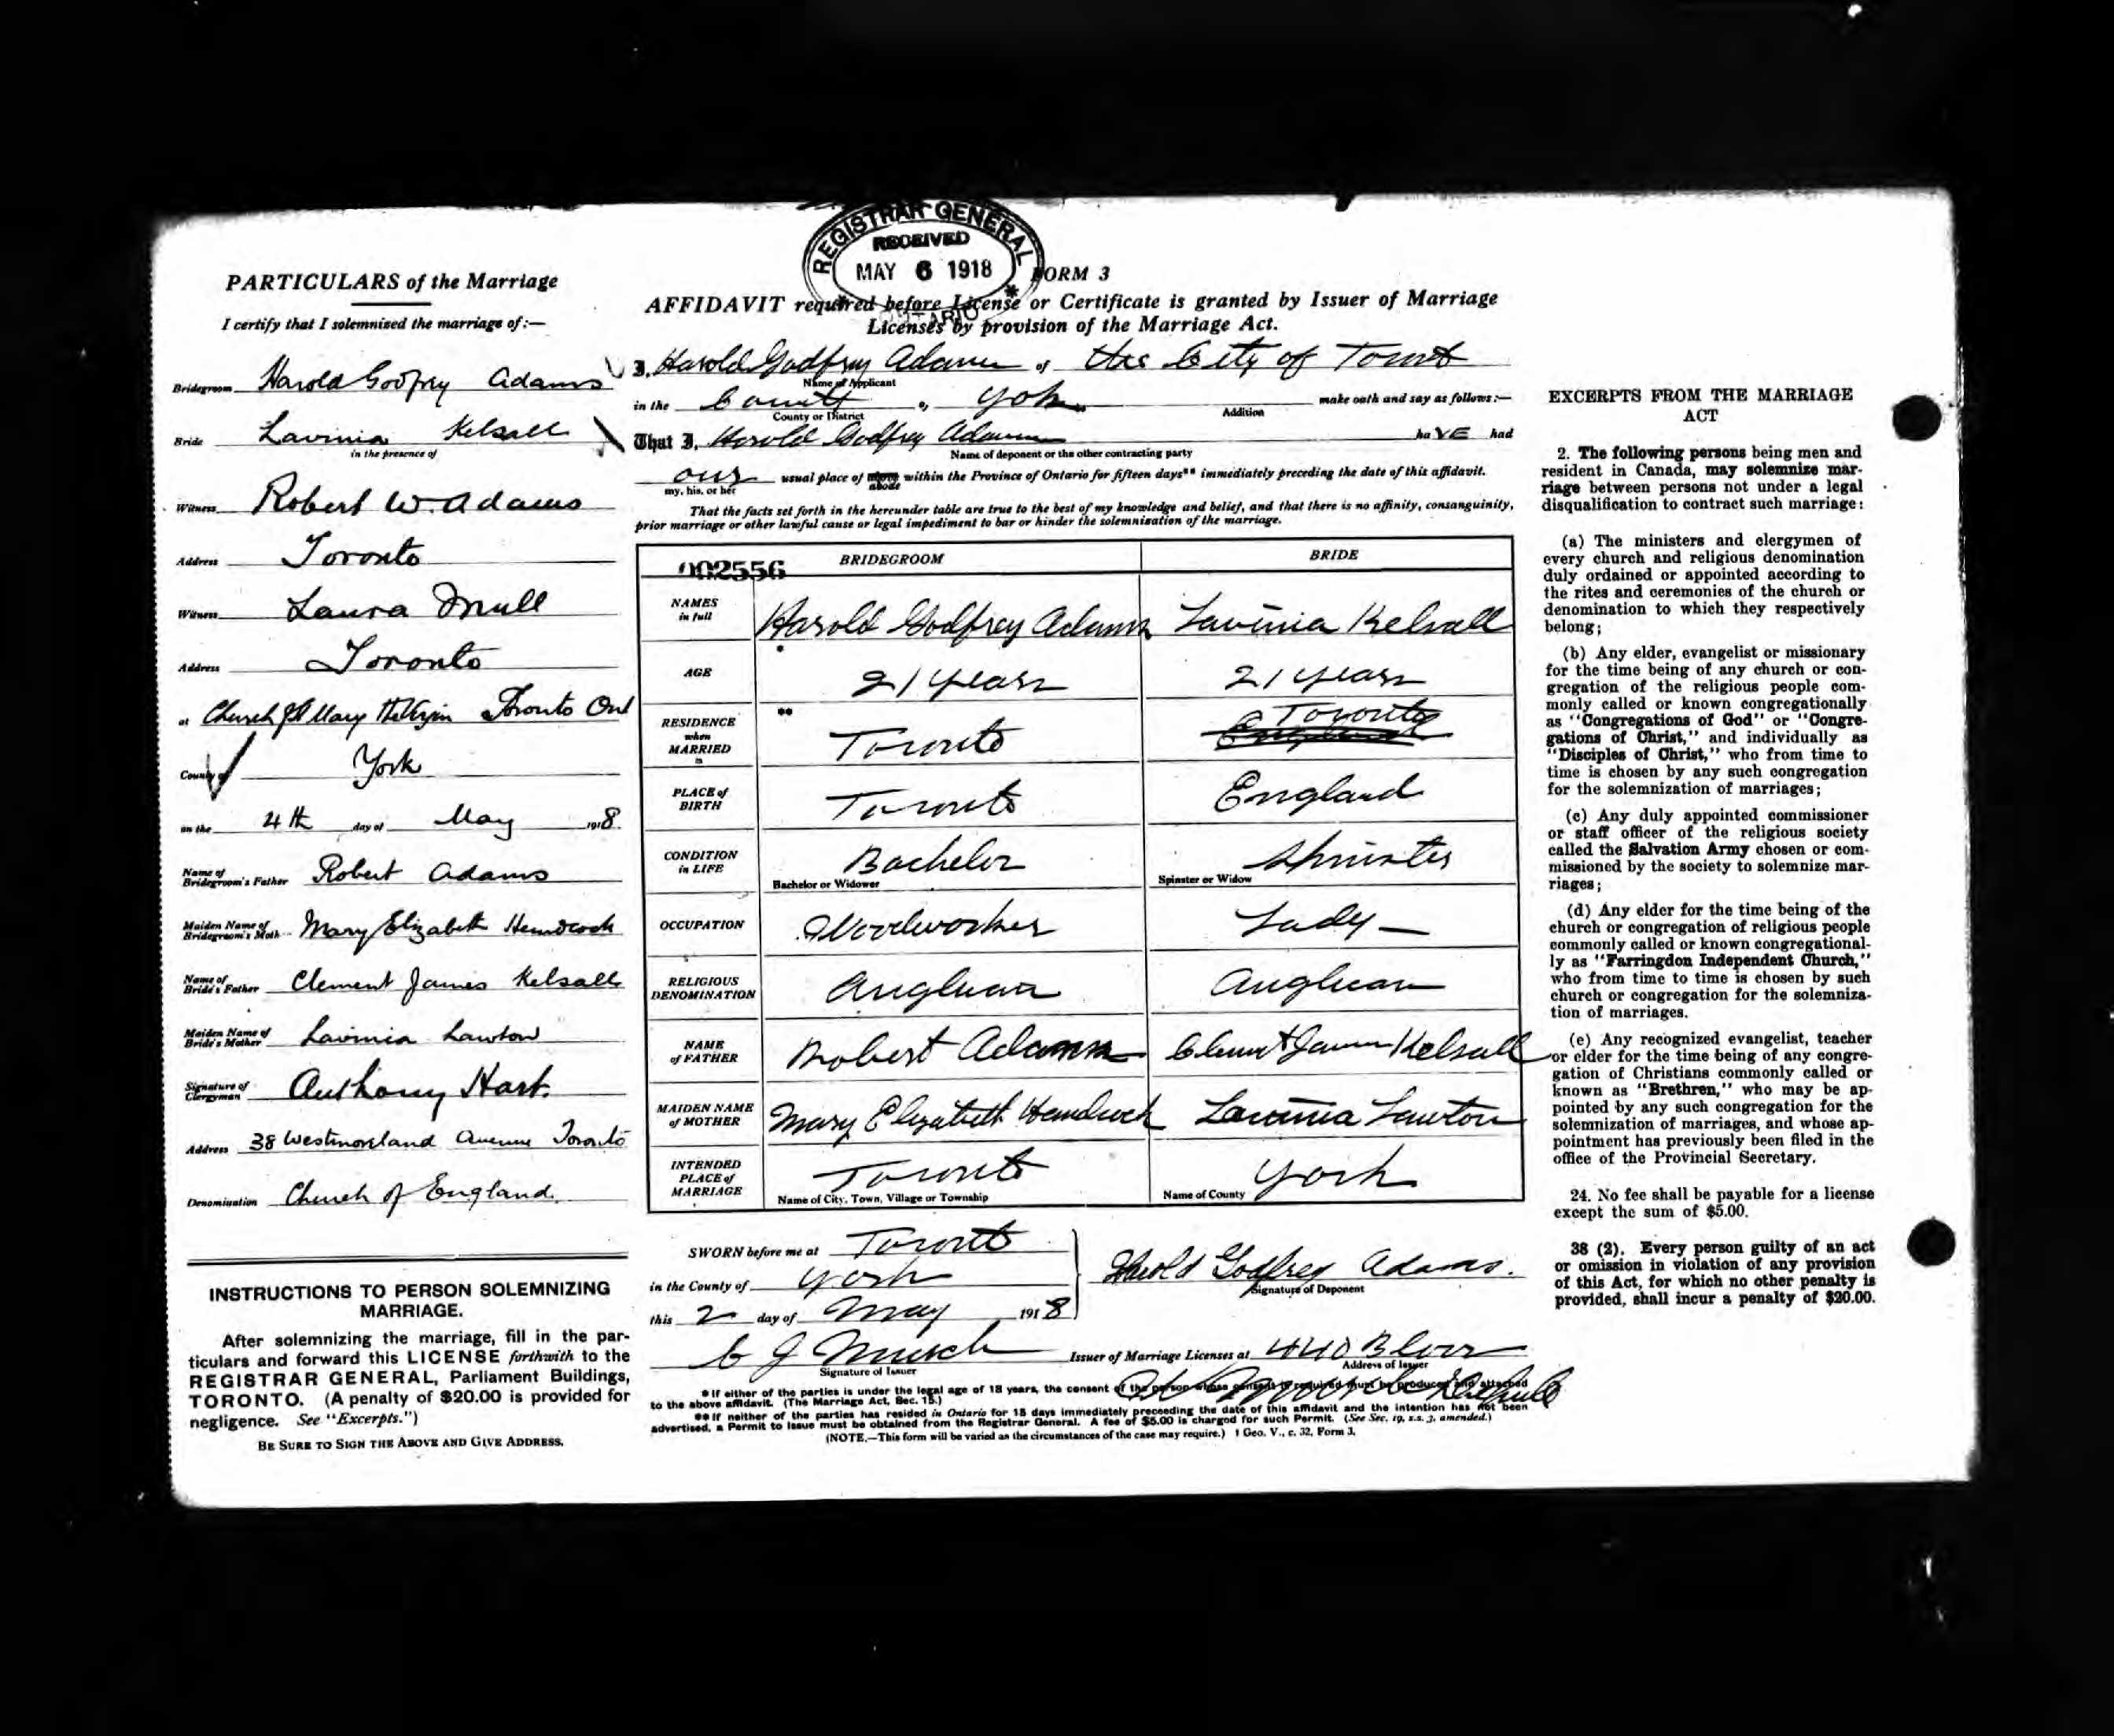 REGISTRAR GENERAL
RECEIVED
MAY 6 1918
ONTARIO
PARTICULARS of the Marriage
I certify that I solemnized the marriage of:—
Bridegroom Harold Godfrey Adams
Bride Lavinia Kelsall
in the presence of
Witness Robert W. Adams
Address Toronto
Witness Laura Mull
Address Toronto
at Church of St Mary the Virgin Toronto Ont
County of York
on the 4th day of May 1918.
Name of Bridegroom's Father Robert Adams
Maiden Name of Bridegroom's Moth. Mary Elizabeth
Name of Bride's Father Clement James Kelsall
Maiden Name of Bride's Mother Lavinia Lawton
Signature of Clergyman Anthony Hart.
Address 38 Westmoreland Avenue Toronto
Denomination Church of England.
INSTRUCTIONS TO PERSON SOLEMNIZING
MARRIAGE.
After solemnizing the marriage, fill in the par-
ticulars and forward this LICENSE forthwith to the
REGISTRAR GENERAL, Parliament Buildings,
TORONTO. (A penalty of $20.00 is provided for
negligence. See "Excerpts.")
BE SURE TO SIGN THE ABOVE AND GIVE ADDRESS.
FORM 3
AFFIDAVIT required before License or Certificate is granted by Issuer of Marriage
Licenses by provision of the Marriage Act.
I, Harold Godfrey Adams of the City of Toronto
Name of Applicant
in the County of York make oath and say as follows:—
County or District Addition
That I, Harold Godfrey Adams haVE had
Name of deponent or the other contracting party
our usual place of abode within the Province of Ontario for fifteen days** immediately preceding the date of this affidavit.
my, his, or her
That the facts set forth in the hereunder table are true to the best of my knowledge and belief, and that there is no affinity, consanguinity,
prior marriage or other lawful cause or legal impediment to bar or hinder the solemnisation of the marriage.
002556 BRIDEGROOM BRIDE
NAMES in full Harold Godfrey Adams Lavinia Kelsall
AGE * 21 years 21 years
RESIDENCE when MARRIED is ** Toronto Toronto
PLACE of BIRTH Toronto England
CONDITION in LIFE Bachelor Spinster
Bachelor or Widower Spinster or Widow
OCCUPATION Woodworker Lady —
RELIGIOUS DENOMINATION Anglican Anglican
NAME of FATHER Robert Adams Clement James Kelsall
MAIDEN NAME of MOTHER Mary Elizabeth Lavinia Lawton
INTENDED PLACE of MARRIAGE Toronto York
Name of City, Town, Village or Township Name of County
SWORN before me at Toronto
in the County of York
this 2 day of May 1918
Harold Godfrey Adams.
Signature of Deponent
C J Issuer of Marriage Licenses at 440 Bloor
Signature of Issuer Address of Issuer
* If either of the parties is under the legal age of 18 years, the consent of the person whose consent is required must be produced and attached
to the above affidavit. (The Marriage Act, Sec. 15.)
** If neither of the parties has resided in Ontario for 15 days immediately preceeding the date of this affidavit and the intention has not been
advertised, a Permit to Issue must be obtained from the Registrar General. A fee of $5.00 is charged for such Permit. (See Sec. 19, s.s. 3, amended.)
(NOTE.—This form will be varied as the circumstances of the case may require.) 1 Geo. V., c. 32, Form 3.
EXCERPTS FROM THE MARRIAGE
ACT
2. The following persons being men and
resident in Canada, may solemnize mar-
riage between persons not under a legal
disqualification to contract such marriage:
(a) The ministers and clergymen of
every church and religious denomination
duly ordained or appointed according to
the rites and ceremonies of the church or
denomination to which they respectively
belong;
(b) Any elder, evangelist or missionary
for the time being of any church or con-
gregation of the religious people com-
monly called or known congregationally
as "Congregations of God" or "Congre-
gations of Christ," and individually as
"Disciples of Christ," who from time to
time is chosen by any such congregation
for the solemnization of marriages;
(c) Any duly appointed commissioner
or staff officer of the religious society
called the Salvation Army chosen or com-
missioned by the society to solemnize mar-
riages;
(d) Any elder for the time being of the
church or congregation of religious people
commonly called or known congregational-
ly as "Farringdon Independent Church,"
who from time to time is chosen by such
church or congregation for the solemniza-
tion of marriages.
(e) Any recognized evangelist, teacher
or elder for the time being of any congre-
gation of Christians commonly called or
known as "Brethren," who may be ap-
pointed by any such congregation for the
solemnization of marriages, and whose ap-
pointment has previously been filed in the
office of the Provincial Secretary.
24. No fee shall be payable for a license
except the sum of $5.00.
38 (2). Every person guilty of an act
or omission in violation of any provision
of this Act, for which no other penalty is
provided, shall incur a penalty of $20.00.